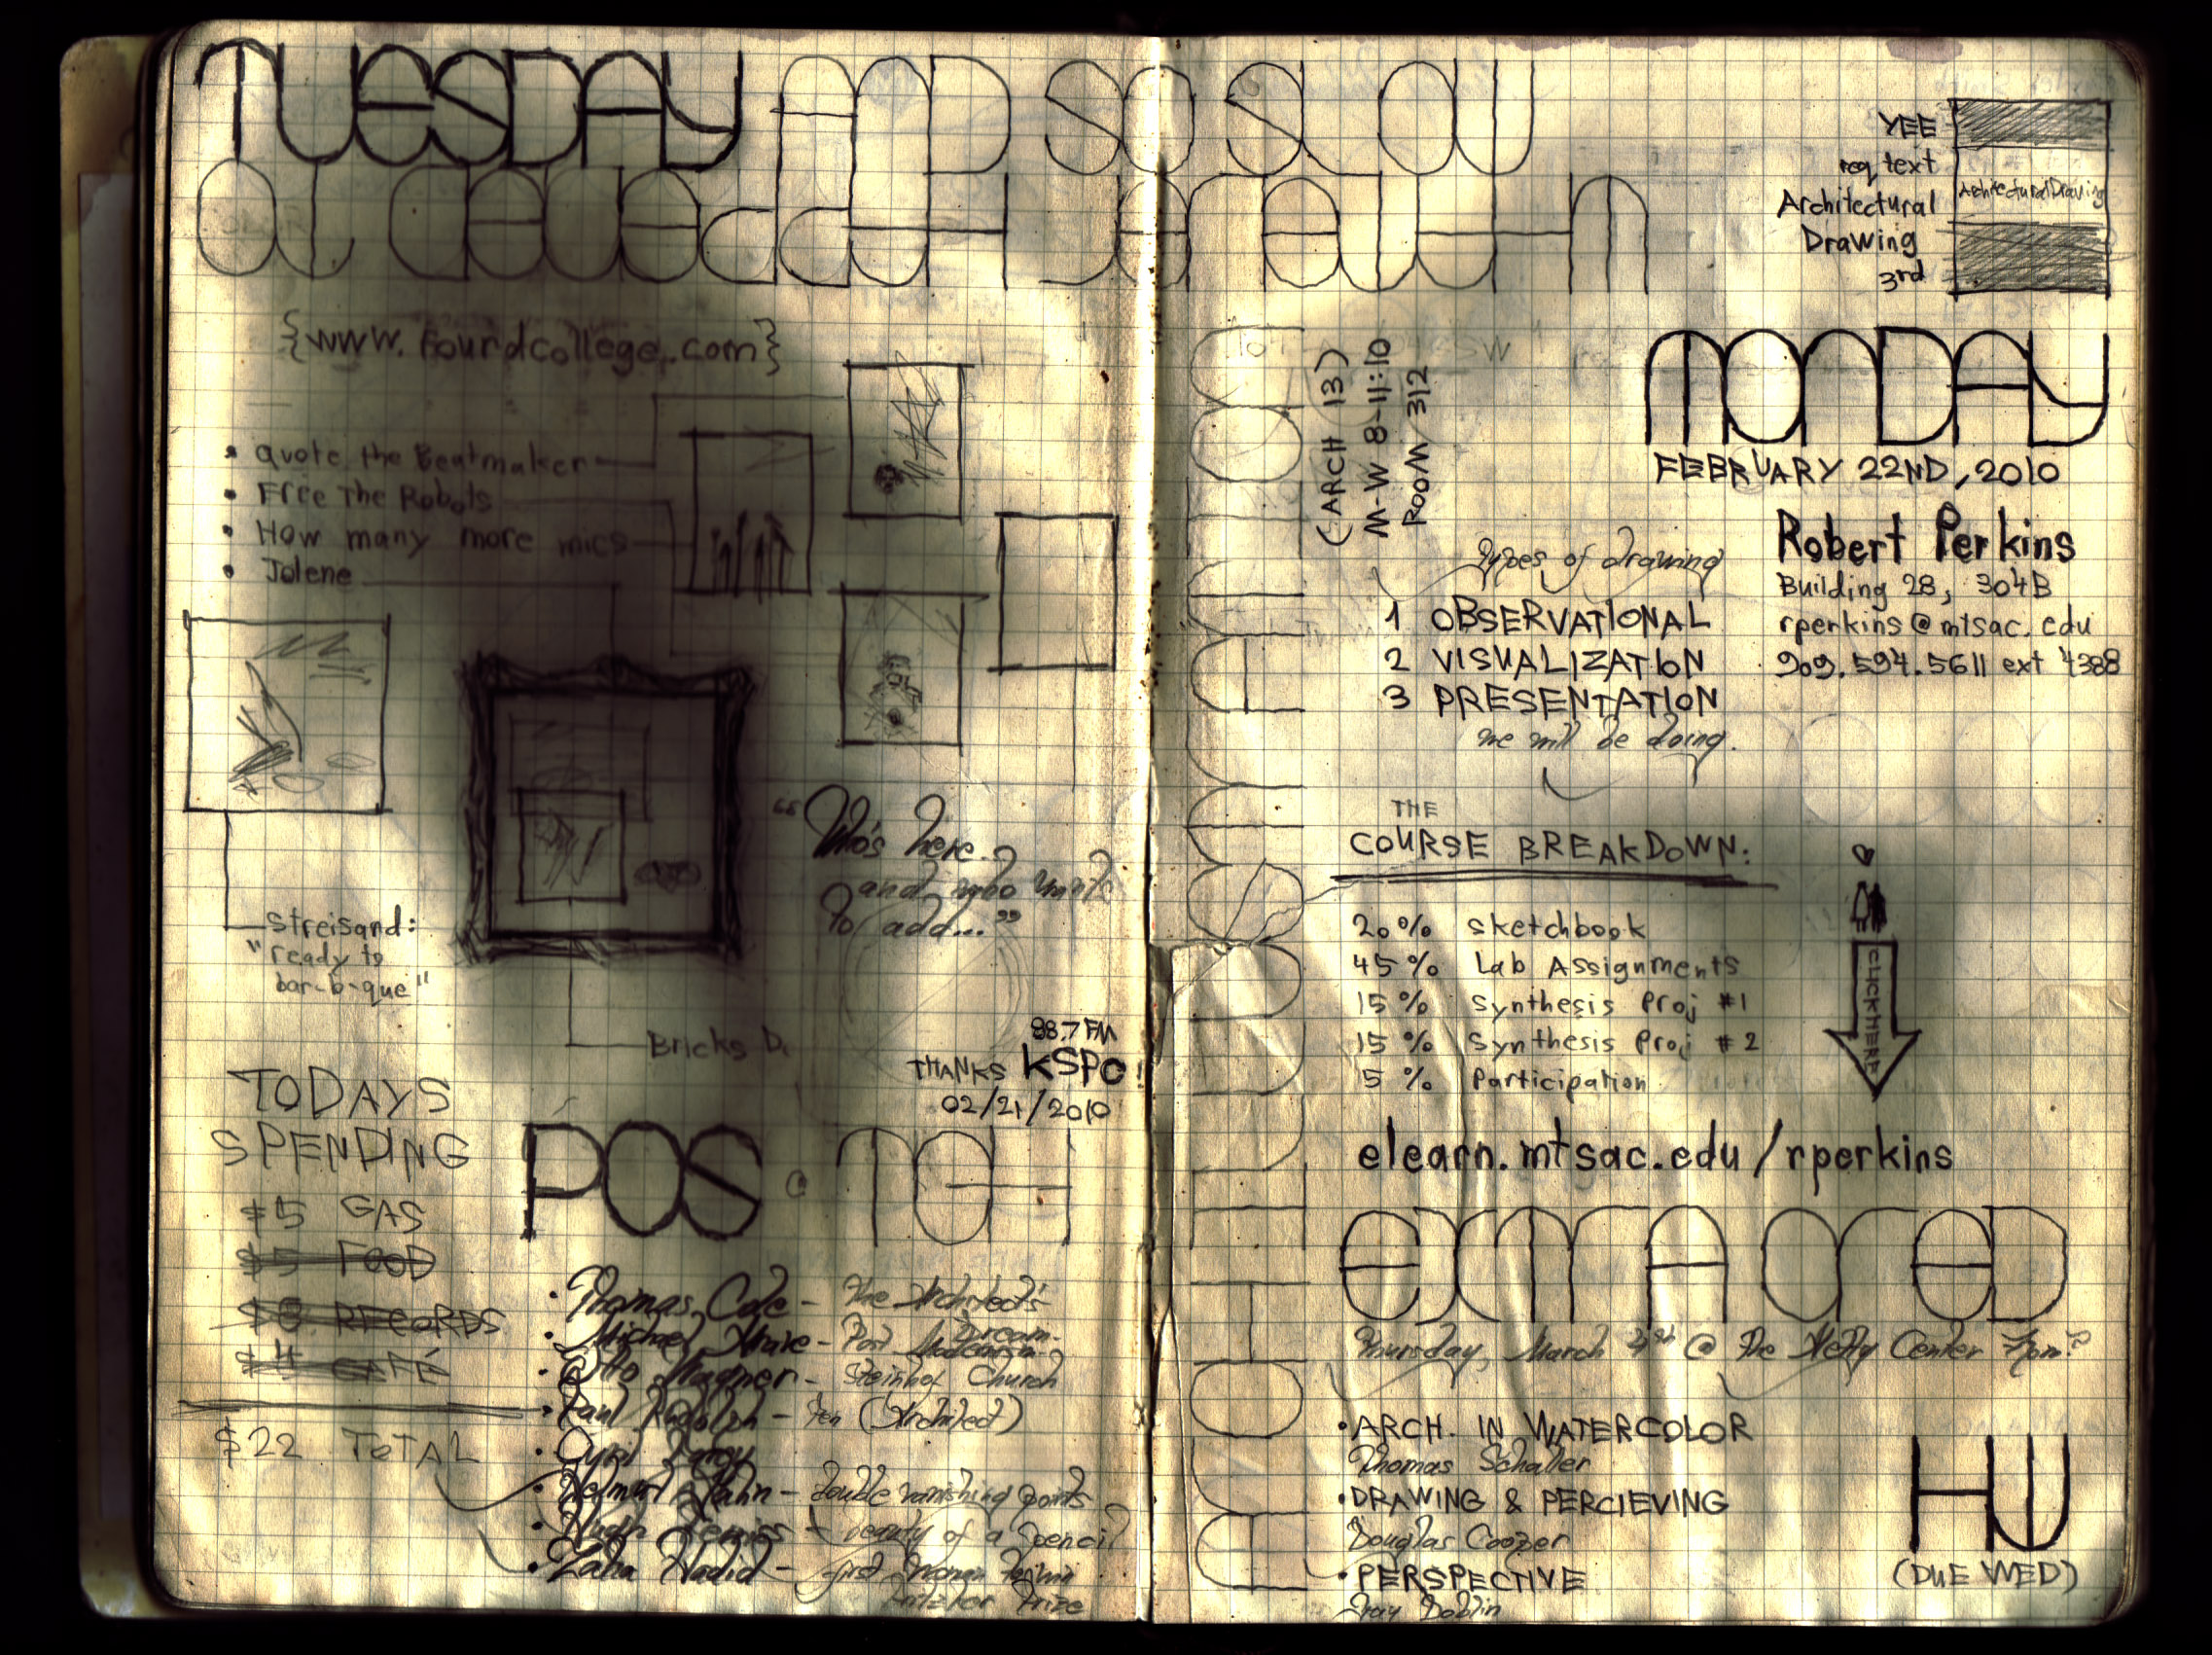 TUESDAY AND SO SLOW
{www.fourdcollege.com}
• quote the Beatmaker
• Free The Robots
• How many more mics
• Jolene
streisand:
"ready to
bar-b-que"
"Who's here..
and who wants
to add..."
Bricks
88.7 FM
THANKS KSPC!
02/21/2010
TODAYS
SPENDING
$5 GAS
$5 FOOD
$8 RECORDS
$4 CAFÉ
$22 TOTAL
POS
• Thomas Cole - The Architect's
Dream
• Michael - Post Modernism
• Otto Wagner - Steinhof Church
• Paul Rudolph - Pen (Architect)
• Helmut Jahn - double vanishing points
• Hugh Ferriss - beauty of a pencil
• Zaha Hadid - first woman to win
Pritzker Prize
YEE
req text
Architectural
Drawing
3rd
Architectural Drawing
MONDAY
FEBRUARY 22ND, 2010
(ARCH 13)
M-W 8-11:10
ROOM 312
Robert Perkins
Building 28, 304B
rperkins@mtsac.edu
909.594.5611 ext 4388
types of drawing
1 OBSERVATIONAL
2 VISUALIZATION
3 PRESENTATION
we will be doing.
THE
COURSE BREAKDOWN:
20% sketchbook
45% Lab Assignments
15% Synthesis Proj #1
15% Synthesis Proj #2
5% Participation
CLICK HERE
elearn.mtsac.edu/rperkins
Thursday, March 4th @ The Getty Center 7pm?
• ARCH. IN WATERCOLOR
Thomas Schaller
• DRAWING & PERCIEVING
Douglas Cooper
• PERSPECTIVE
Jay Doblin
HW
(DUE WED)